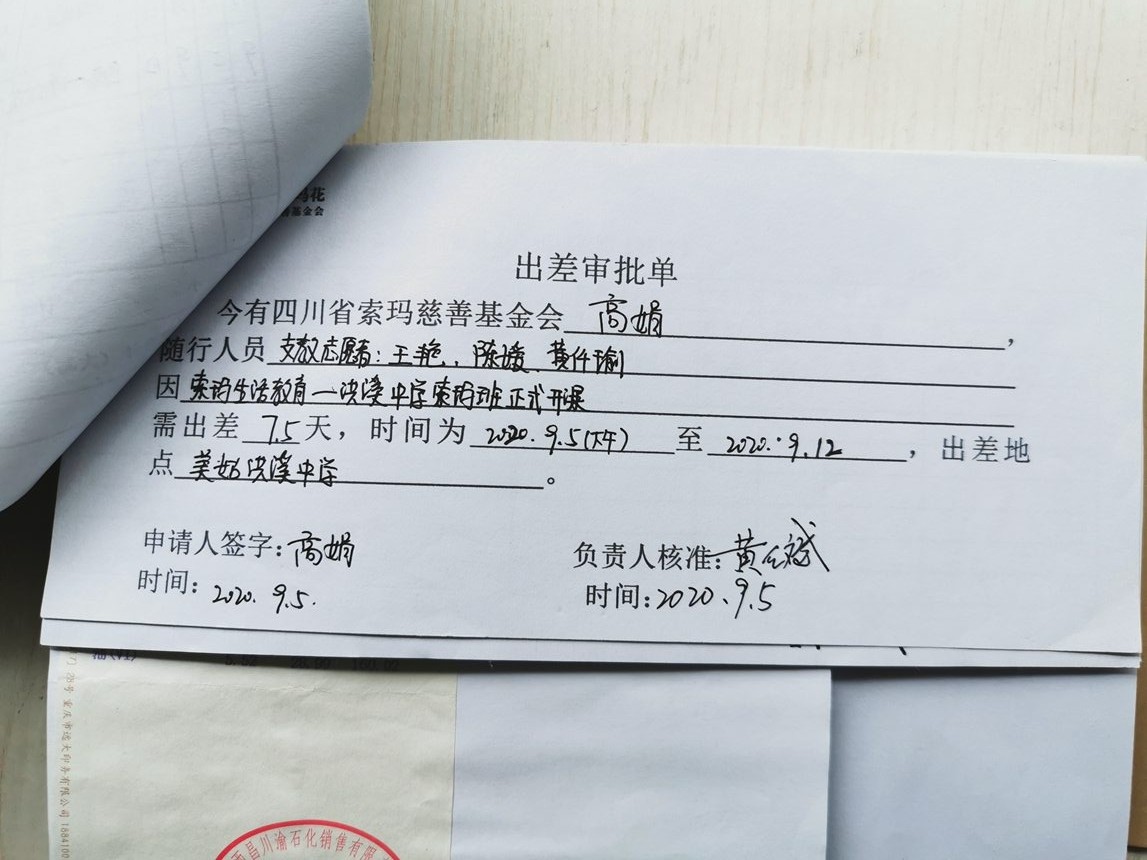 玛花
基金会
出差审批单
今有四川省索玛慈善基金会 高娟 ，
随行人员 支教志愿者：王艳、陈媛、黄仟瑜
因 索玛生活教育—洪溪中学索玛班正式开课
需出差 7.5 天，时间为 2020.9.5(下午) 至 2020.9.12 ，出差地
点 美姑洪溪中学 。
申请人签字：高娟
负责人核准：黄
时间：2020.9.5.
时间：2020、9.5
重庆市远大印务有限公司
昌川渝石化销售有限